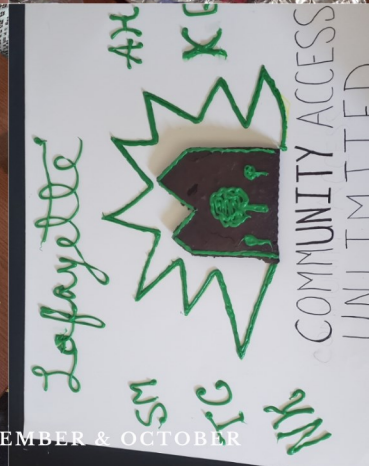 Lafayette
SM AH
TC
NK
COMMUNITY ACCESS
UNLIMITED
EMBER & OCTOBER